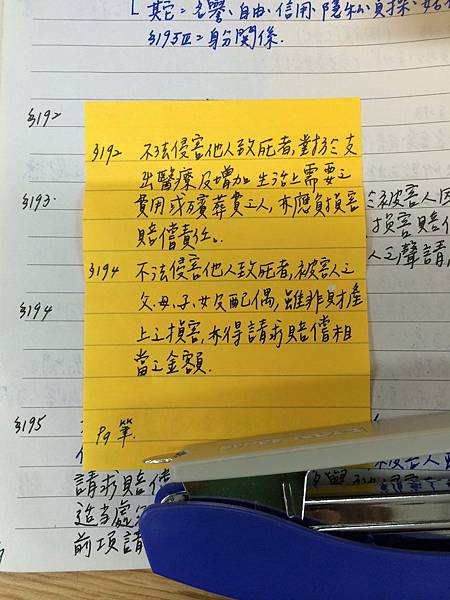 其它=名譽、自由、信用、隱私、貞操
§195Ⅲ=身分關係.
§192
§192 不法侵害他人致死者,對於支
出醫療及增加生活上需要之
費用或殯葬費之人,亦應負損害
賠償責任。
§193.
被害人因
損害賠
人之聲請,
§194 不法侵害他人致死者,被害人之
父、母、子、女及配偶,雖非財產
上之損害,亦得請求賠償相
當之金額.
§194
P9 筆.
§195
請求賠償
適當處
前項請